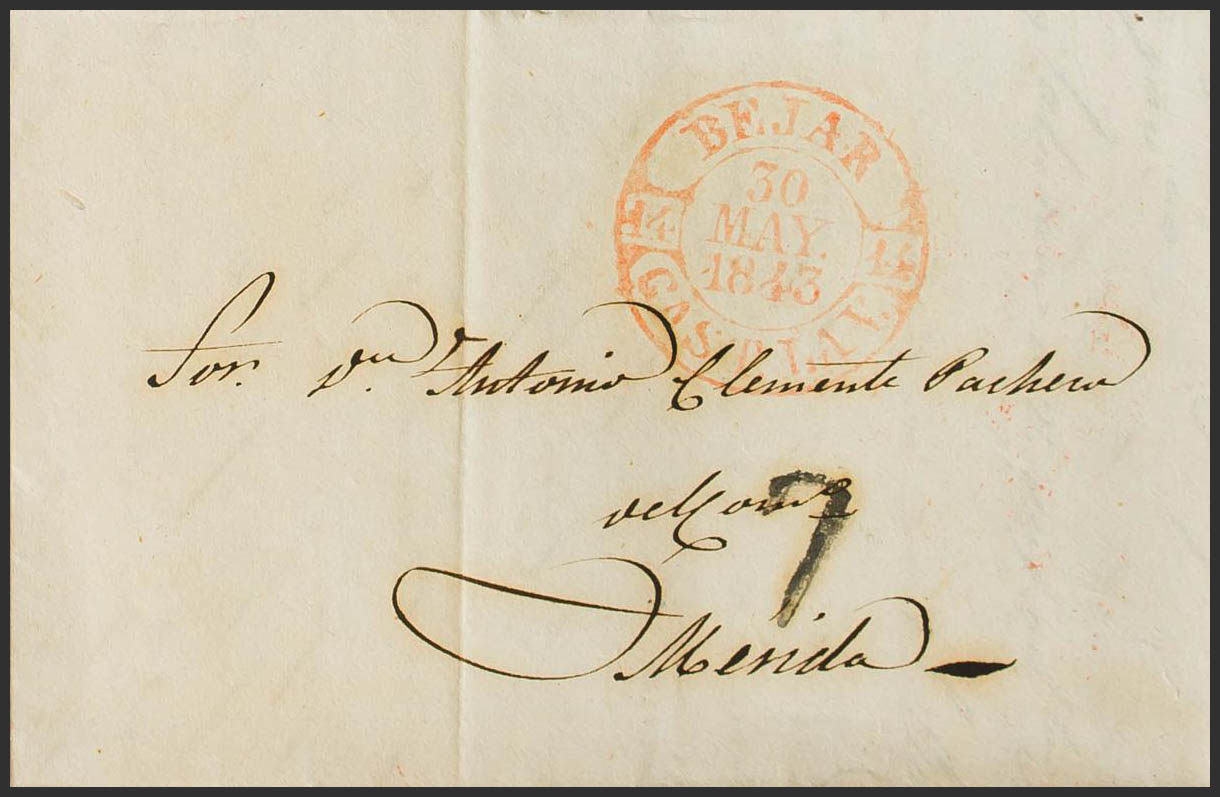 BEJAR
30
MAY.
1843
14 14
CAST. LA V.
Sor. Dn. Antonio Clemente Pacheco
del Come.
7
Merida